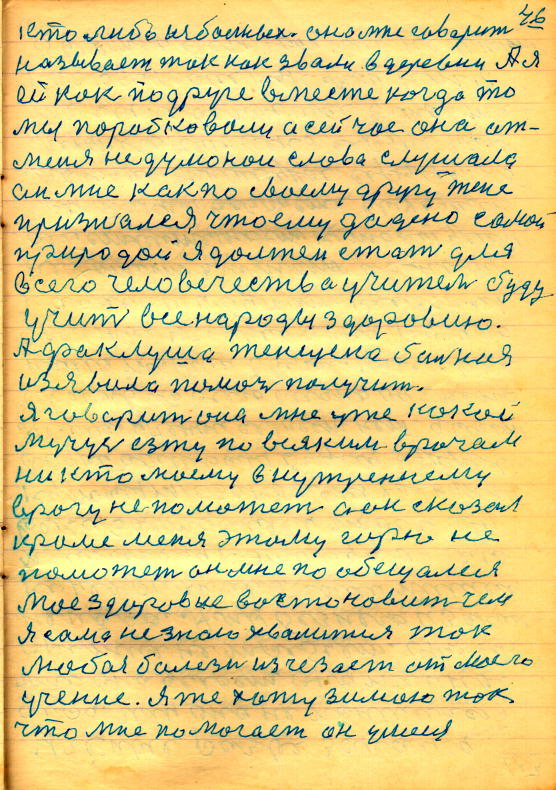 46
кто либъ из больных. она мне говарит
называет так как звали в деревни А я
ей как подруге вместе когда то
мы поработовали а сейчас она от-
меня слова слушала
он мне как по своему другу жене
признался что ему дадено самой
природой Я должен стат для
всего человечества учителем буду
учит все народы здоровию.
А женщена балная
изявила помоч получит.
Я говарит она мне уже какой
мучус езжу по всяким врачам
никто моему внутреннему
врагу не поможет а он сказал
кроме меня этому горю не
поможет он мне по обещался
мое здоровие востоновит чем
я сама не знаю хвалития так
любая балезн изчезает от моего
учение. Я же хожу зимою так
что мне помогает он умеия